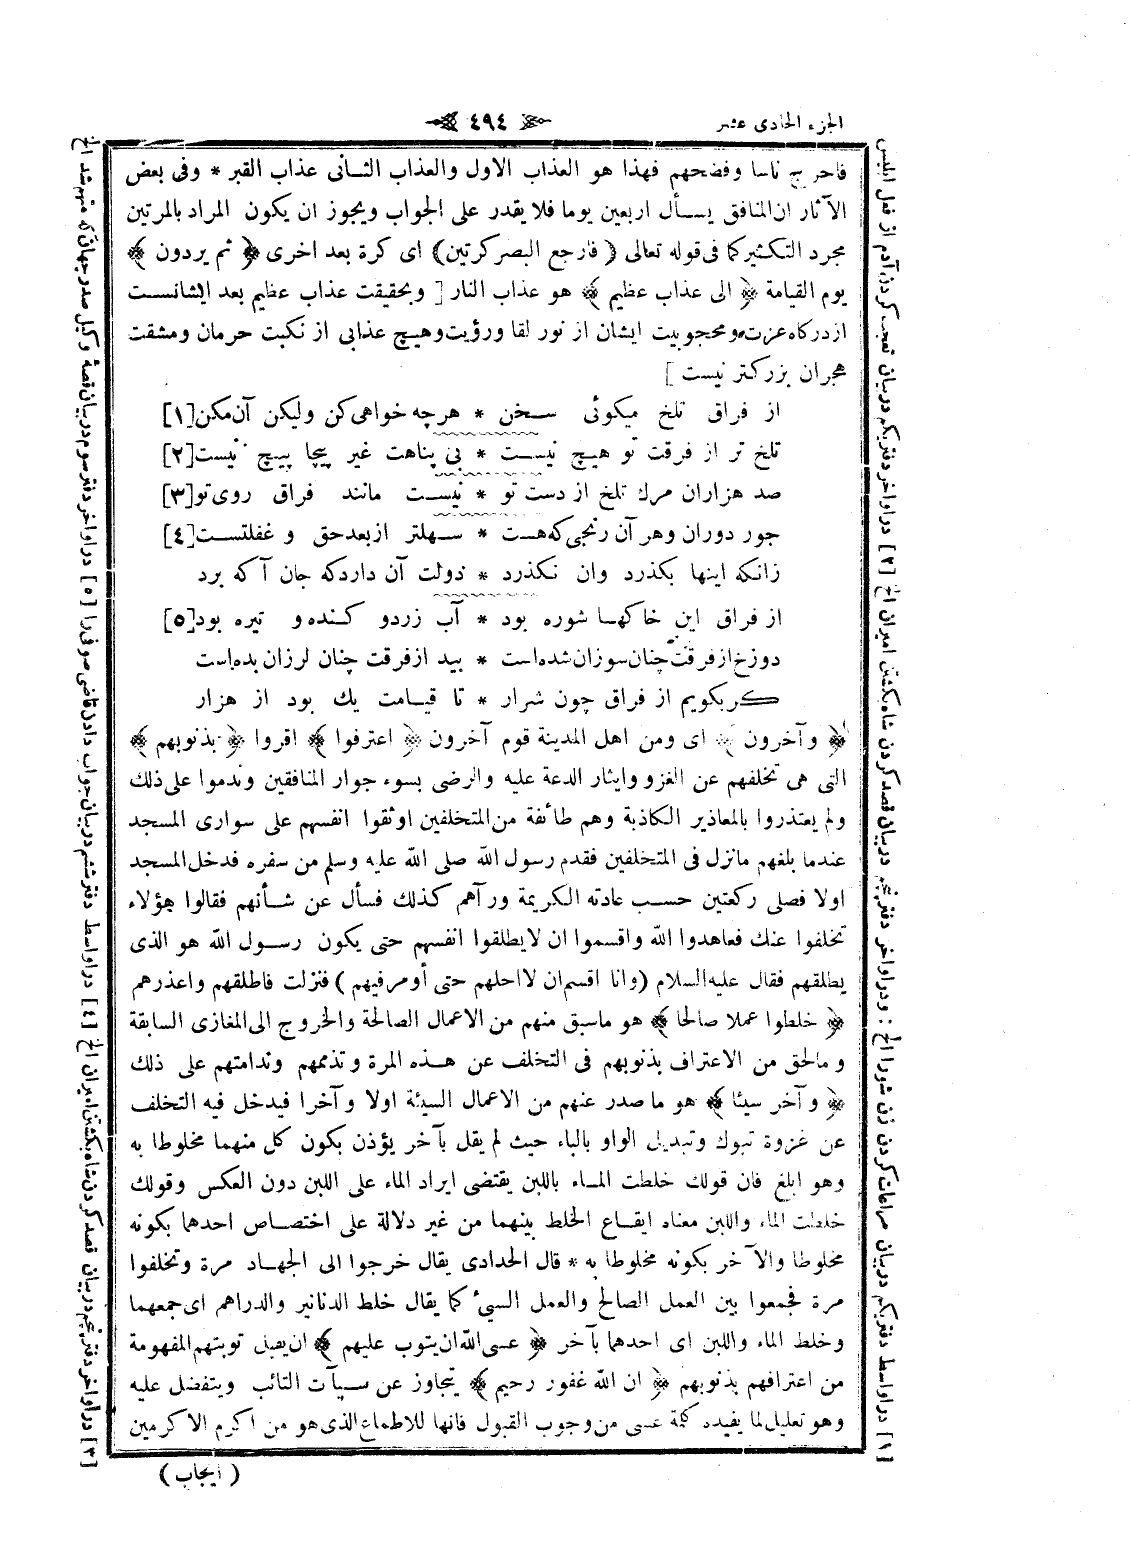 الجزء الحادى عشر
٤٩٤
فاخرج ناسا وفضحهم فهذا هو العذاب الاول والعذاب الثانى عذاب القبر * وفى بعض
الآثار ان المنافق يسأل اربعين يوما فلا يقدر على الجواب ويجوز ان يكون المراد بالمرتين
مجرد التكثير كما فى قوله تعالى ( فارجع البصر كرتين) اى كرة بعد اخرى ﴿ ثم يردون ﴾
يوم القيامة ﴿ الى عذاب عظيم ﴾ هو عذاب النار [ وبحقيقت عذاب عظيم بعد ايشانست
ازدركاه عزت ومحجوبيت ايشان از نور لقا ورؤيت وهيچ عذابى از نكبت حرمان ومشقت
هجران بزركتر نيست ]
از فراق تلخ ميكوئى سخن * هرچه خواهى كن وليكن آن مكن[١]
تلخ تر از فرقت تو هيچ نيست * بى پناهت غير پيچا پيچ نيست[٢]
صد هزاران مرك تلخ از دست تو * نيست مانند فراق روى تو[٣]
جور دوران وهر آن رنجى كه هست * سهلتر ازبعد حق و غفلتست[٤]
زانكه اينها بكذرد وان نكذرد * دولت آن داردكه جان آكه برد
از فراق اين خاكها شوره بود * آب زردو كنده و تيره بود[٥]
دوزخ از فرقت چنان سوزان شده است * بيد از فرقت چنان لرزان بده است
كر بكويم از فراق چون شرار * تا قيامت يك بود از هزار
﴿ وآخرون ﴾ اى ومن اهل المدينة قوم آخرون ﴿ اعترفوا ﴾ اقروا ﴿ بذنوبهم ﴾
التى هى تخلفهم عن الغزو وايثار الدعة عليه والرضى بسوء جوار المنافقين وندموا على ذلك
ولم يعتذروا بالمعاذير الكاذبة وهم طائفة من المتخلفين اوثقوا انفسهم على سوارى المسجد
عندما بلغهم مانزل فى المتخلفين فقدم رسول الله صلى الله عليه وسلم من سفره فدخل المسجد
اولا فصلى ركعتين حسب عادته الكريمة ورآهم كذلك فسأل عن شأنهم فقالوا هؤلاء
تخلفوا عنك فعاهدوا الله واقسموا ان لايطلقوا انفسهم حتى يكون رسول الله هو الذى
يطلقهم فقال عليه السلام (وانا اقسم ان لااحلهم حتى أومر فيهم ) فنزلت فاطلقهم واعذرهم
﴿ خلطوا عملا صالحا ﴾ هو ماسبق منهم من الاعمال الصالحة والخروج الى المغازى السابقة
ومالحق من الاعتراف بذنوبهم فى التخلف عن هذه المرة وتذممهم وندامتهم على ذلك
﴿ وآخر سيئا ﴾ هو ما صدر عنهم من الاعمال السيئة اولا وآخرا فيدخل فيه التخلف
عن غزوة تبوك وتبديل الواو بالباء حيث لم يقل بآخر يؤذن بكون كل منهما مخلوطا به
وهو ابلغ فان قولك خلطت الماء باللبن يقتضى ايراد الماء على اللبن دون العكس وقولك
خلطت الماء واللبن معناه ايقاع الخلط بينهما من غير دلالة على اختصاص احدهما بكونه
مخلوطا والآخر بكونه مخلوطا به * قال الحدادى يقال خرجوا الى الجهاد مرة وتخلفوا
مرة فجمعوا بين العمل الصالح والعمل السيئ كما يقال خلط الدنانير والدراهم اى جمعهما
وخلط الماء واللبن اى احدهما بآخر ﴿ عسى الله ان يتوب عليهم ﴾ ان يقبل توبتهم المفهومة
من اعترافهم بذنوبهم ﴿ ان الله غفور رحيم ﴾ يتجاوز عن سيآت التائب ويتفضل عليه
وهو تعليل لما يفيده كلمة عسى من وجوب القبول فانها للاطماع الذى هو من اكرم الاكرمين
( ايجاب )
[١] دراواسط دفتر يكم دربيان مراعات كردن زن شورا الخ : ودراواخر دفتر پنجم دربيان قصد كردن شاه بكشتن اميران الخ [٢] دراواخر دفتر يكم دربيان تعجب كردن آدم از فعل ابليس
[٣] دراواخر دفتر پنجم دربيان قصد كردن شاه بكشتن اميران الخ [٤] دراواسط دفتر ششم دربيان جواب دادن قاضى صوفى را [٥] دراواخر دفتر سوم دربيان قصۀ وكيل صدر جهان كه متهم شد الخ